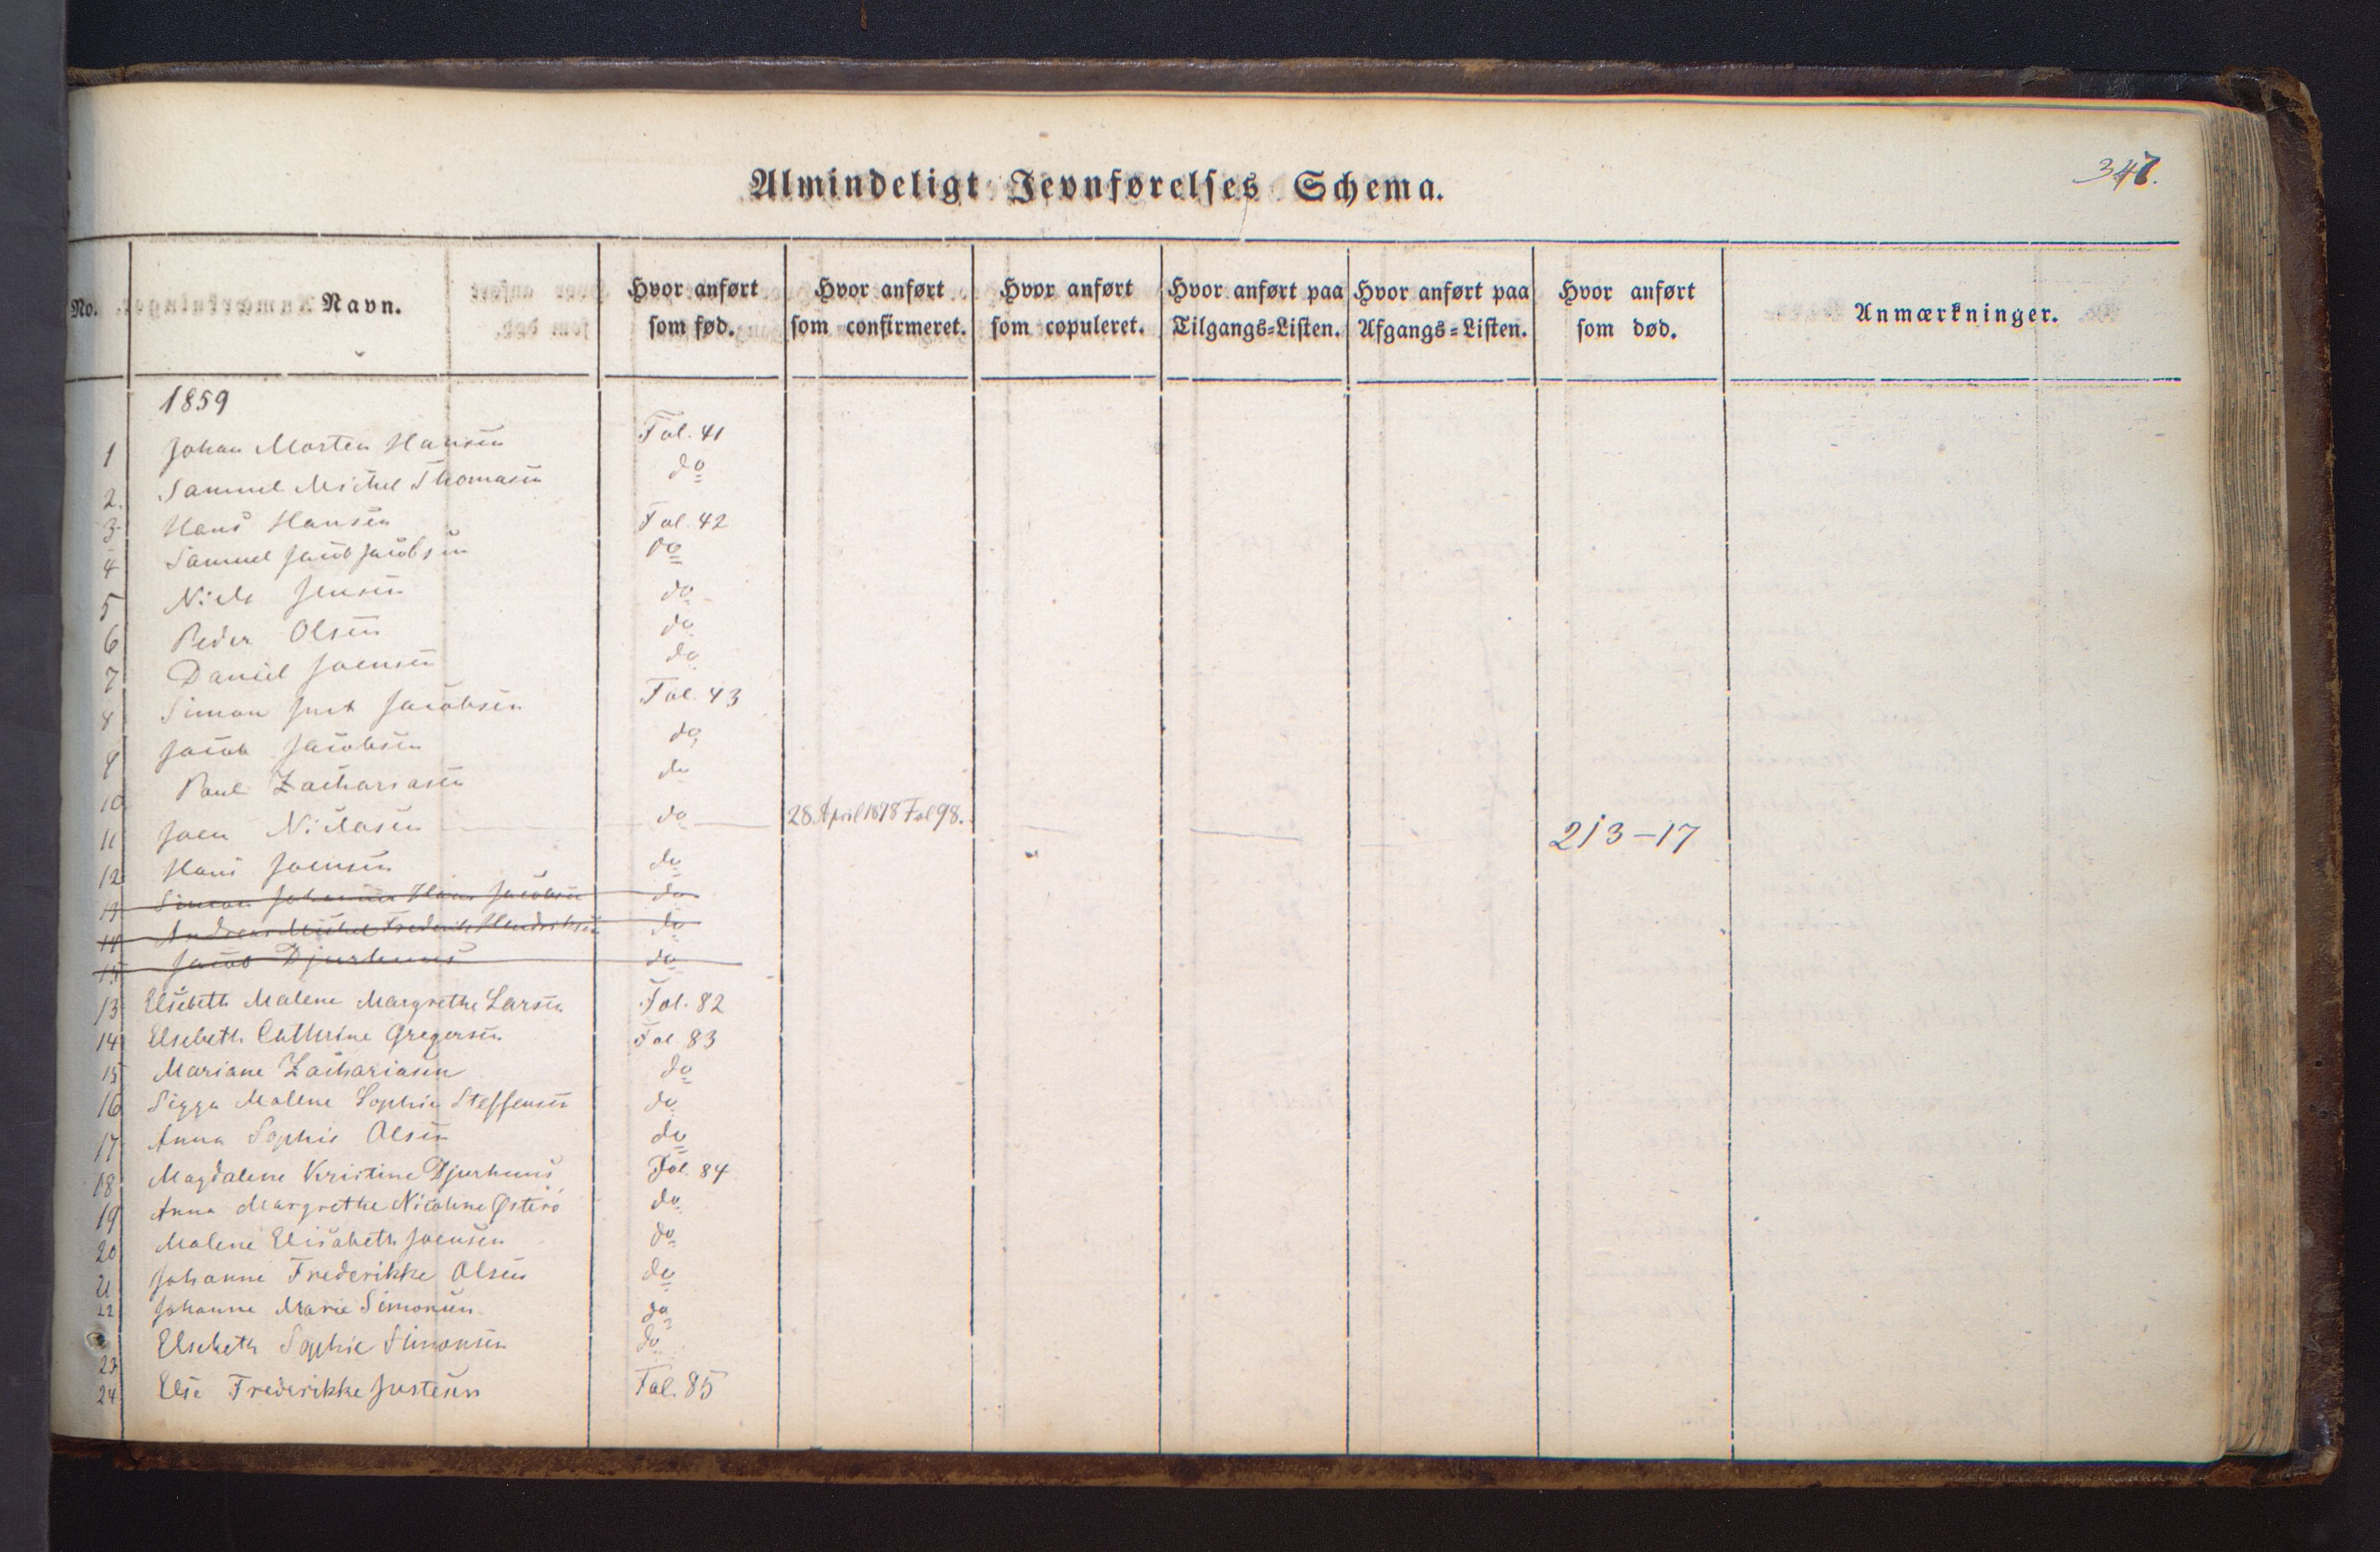 347.
Almindeligt Jevnførelses Schema.
No. Navn. Hvor anført som fød. Hvor anført som confirmeret. Hvor anført som copuleret. Hvor anført paa Tilgangs=Listen. Hvor anført paa Afgangs=Listen. Hvor anført som død. Anmærkninger.
1859
1 Johan Morten Hansen Fol. 41
2. Samuel Michel Thomasen do
3. Hans Hansen Fol. 42
4 Samuel Jacob Jacobsen do
5 Niels Jensen do
6 Peder Olsen do
7 Daniel Joensen do
8 Simon Just Jacobsen Fol. 43
9 Jacob Jacobsen do
10 Paul Zachariasen do
11 Joen Niclasen do 28 April 1878 Fol 98. 213-17
12 Hans Joensen do
13 Simon Johannes Hans Jacobsen do
14 Andreas Michel Frederik Hendriksen do
15 Jacob Djurhuus do
13 Elsebeth Malene Margrethe Larsen Fol. 82
14 Elsebeth Cathrine Gregersen Fol 83
15 Mariane Zachariasen do
16 Sigga Malene Sophie Steffensen do
17 Anna Sophie Olsen do
18 Magdalene Kristine Djurhuus Fol. 84
19 Anna Margrethe Nicoline Østerø do
20 Malene Elisabeth Joensen do
21 Johanne Frederikke Olsen do
22 Johanne Marie Simonsen do
23 Elsebeth Sophie Simonsen do
24 Else Frederikke Justesen Fol. 85